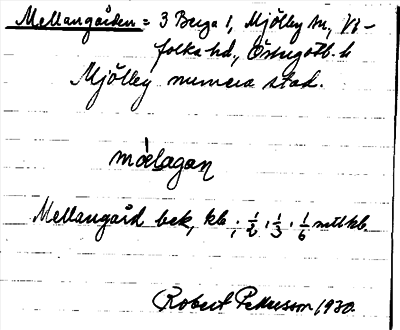 Mellangården = 3 Berga 1, Mjölby sn, Vi-
folka hd, Östergötl. l.
Mjölby numera stad.
mèlagan
Mellangård bek, kb, ; 1/2, 1/3, 1/6 mtl kb.
Robert Pettersson 1930.